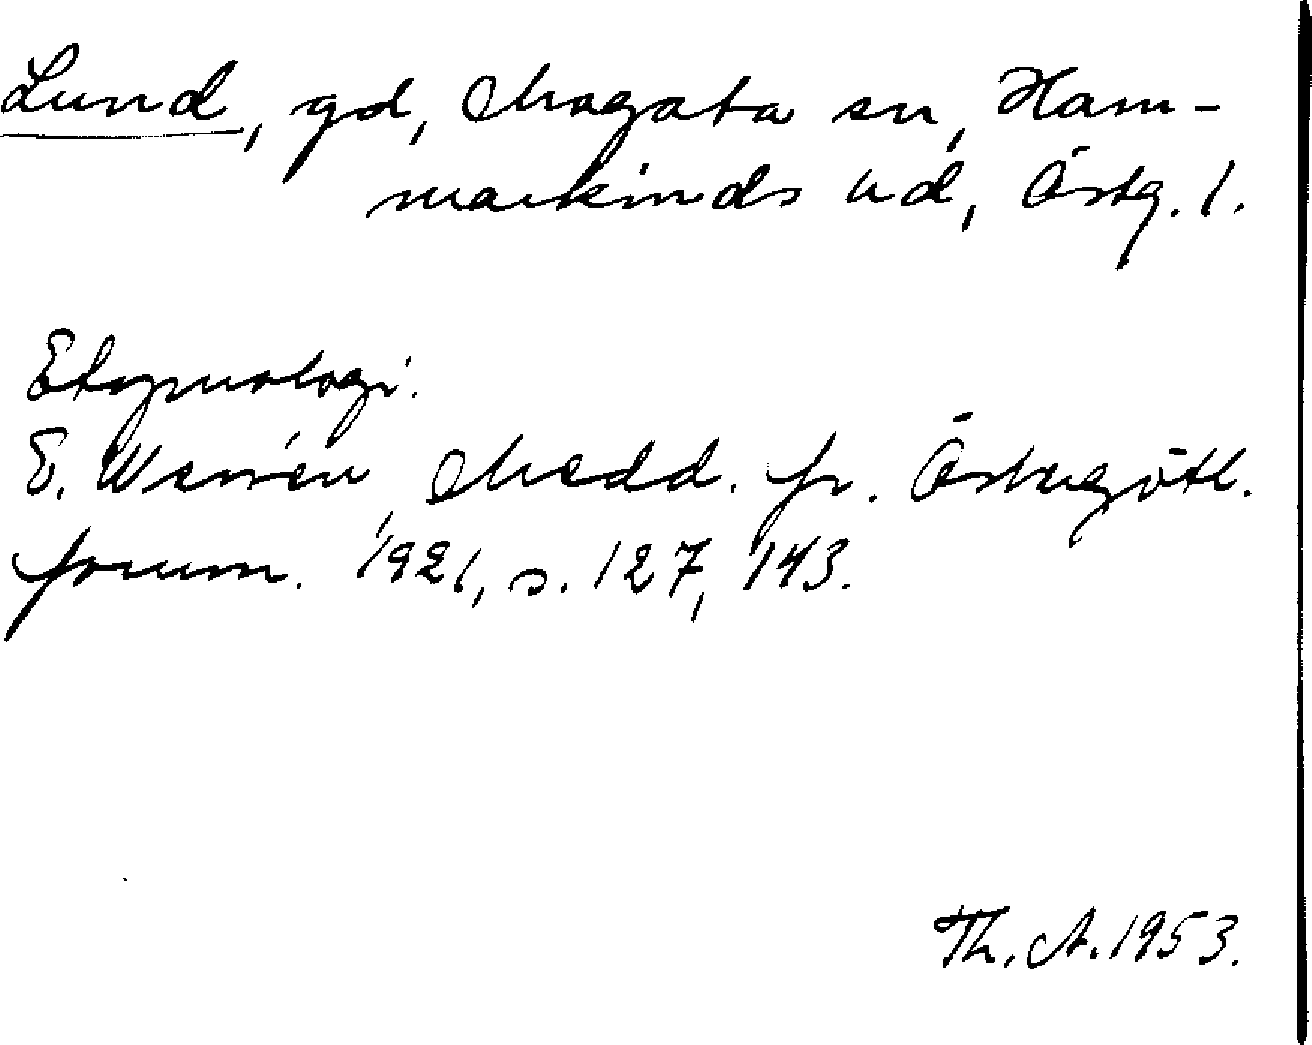 Lund, gd, Mogata sn, Ham-
markinds hd, Östg. l.
Etymologi.
E. Wessén, Medd. fr. Östergötl.
fornm. 1921, s. 127, 143.
Th. A. 1953.